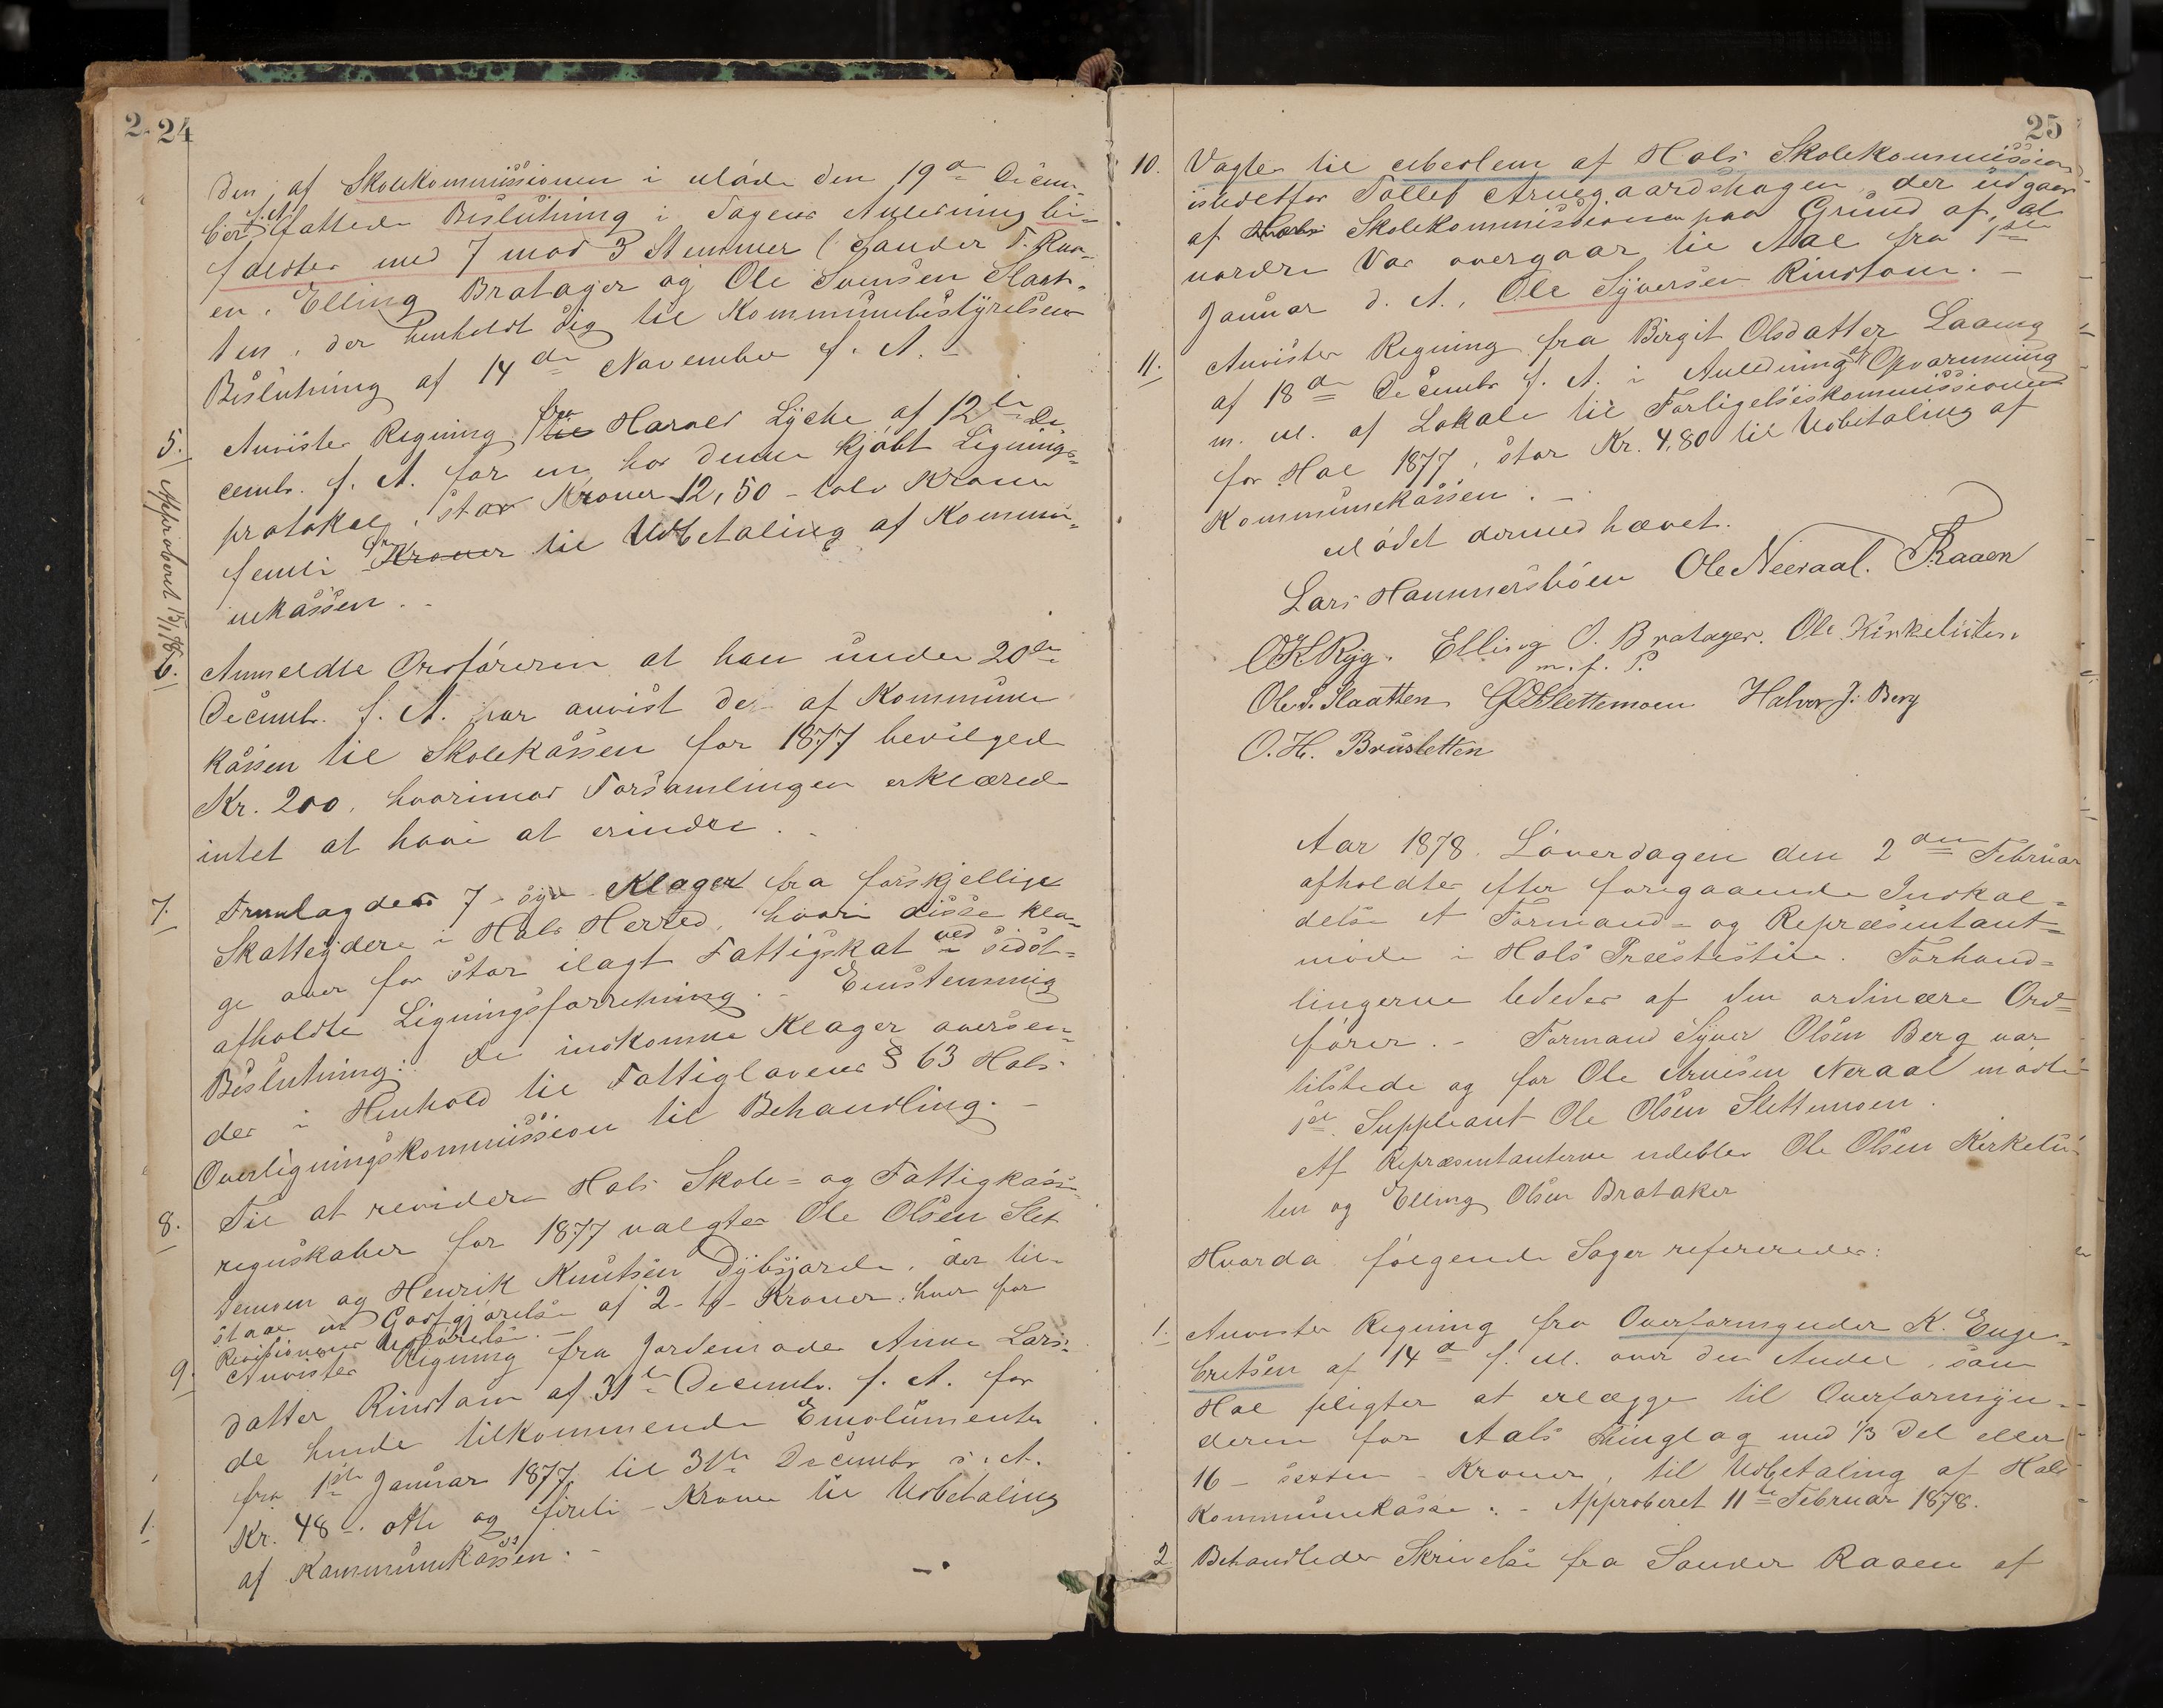 2. 24
den af Skolekommissionen i Møde den 19de Decem-
ber f. A. fattede Beslutning i Sagens Anledning bi-
faldtes med 7 mod 3 Stemmer (Sander T. Raa-
en, Elling Bratager og Ole Svensen Slaat-
ten, der henholdt sig til Kommunebestyrelsens
Beslutning af 14de November f. A. -
5. Anvistes Regning til fra Harald Lyche af 12te De-
cembr. f. A. for en hos denne kjøbt Lignings-
protokol, stor Kroner 12,50 - tolv Kroner
femti Øre Kroner til Udbetaling af Kommu-
nekassen. -
Approberet 15/1 78.
6. Anmeldte Ordføreren at han under 20de
Decembr. f. A. har anvist de af Kommune
kassen til Skolekassen for 1877 bevilgede
Kr. 200, hvorimod Forsamlingen erklærede
intet at have at erindre. -
7. Fremlagdes 7 - syv - Klager fra forskjellige
Skatteydere i Hols Herred, hvori disse kla-
ge over for stor ilagt Fattigskat ved sidst-
afholdte Ligningsforretning. - Eenstemmig
Beslutning: De indkomne Klager oversen-
des i Henhold til Fattiglovens § 63 Hols
Overligningskommission til Behandling. -
8. Til at revidere Hols Skole- og Fattigkasse-
regnskaber for 1877 valgtes Ole Olsen Slet
temoen og Henrik Knutsen Dybsjorde, der til-
staaes en Godtgjørelse af 2 - to - Kroner hver for
Revisionens Udførelse. -
9. Anvistes Regning fra Jordemoder Anne Lars-
datter Rindtom af 31te Decembr. f. A. for
de hende tilkommende Emolumenter
fra 1ste Januar 1877 til 31te Decembr s. A.
Kr. 48 - otte og firti - Kroner til Udbetaling
af Kommunekassen. -
1.
25
10. Valgtes til Medlem af Hols Skolekommission
istedetfor Tollef Arnegaardshagen, der udgaar
af Hols Skolekommissionen paa Grund af, at
nordre Dal overgaar til Aal fra 1ste
Januar d. A., Ole Syversen Rindtom. -
11. Anvistes Regning fra Birgit Olsdatter Laaeng
af 18de Decembr f. A. i Anledning af Opvarmning
m. M. af Lokale til Forligelseskommissionen
for Hol 1877, stor Kr. 4,80 til Udbetaling af
Kommunekassen. -
Mødet dermed hævet.
Lars Hammersbøen Ole Neeraal. Raaen
OKRyg. Elling O. Bratager. Ole Kirkelieten
m. f. P.
Ole S. Slaatten OOSlettemoen Halvor J. Berg
O. H. Brusletten
Aar 1878. Løverdagen den 2den Februar
afholdtes efter foregaaende Indkal-
delse et Formand- og Repræsentant-
møde i Hols Præstestue. Forhand-
lingerne lededes af den ordinære Ord-
fører. - Formand Syver Olsen Berg var
tilstede og for Ole Arnesen Neraal mødte
1ste Suppleant Ole Olsen Slettemoen.
Af Repræsentanterne udeblev Ole Olsen Kirkelie-
ten og Elling Olsen Brataker
Hvorda følgende Sager refereredes:
1. Anvistes Regning fra Overformynder K. Enge-
bretsen af 14de f. M. over den Andel, som
Hol pligter at erlægge til Overformyn-
deren for Aals Thinglag med 1/3 Del eller
16 - sexten - Kroner, til Udbetaling af Hols
Kommunekasse. - Approberet 11te Februar 1878.
2 Behandledes Skrivelse fra Sander Raaen af